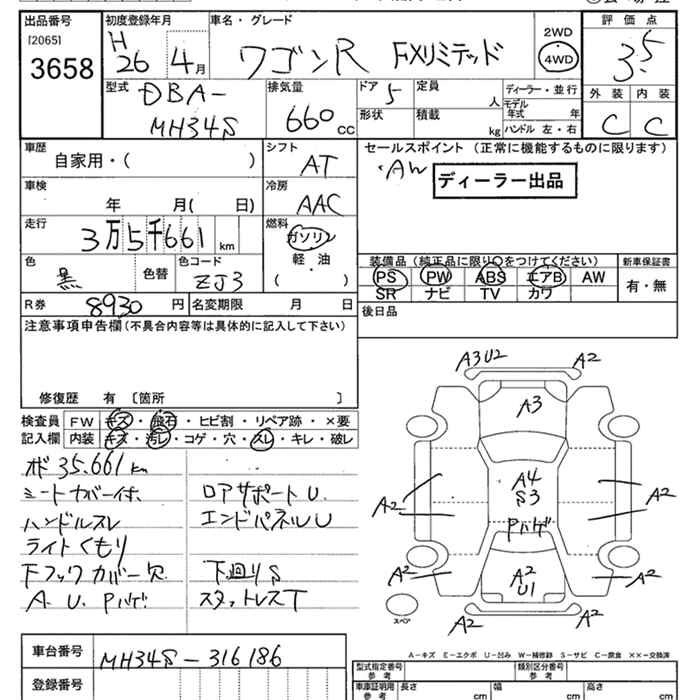 出品番号
[2065]
3658
初度登録年月
H
26 4月
車名・グレード
ワゴンR FXリミテッド
2WD
4WD
評価点
3.5
外装 内装
C C
型式
DBA-
MH34S
排気量
660 CC
ドア
5
形状
定員
人
積載
kg
ディーラー・並行
モデル
年式 年
ハンドル 左・右
車歴
自家用・( )
シフト
AT
車検
年 月( 日)
冷房
AAC
走行
3万5千661 km
燃料
ガソリン
軽油
・
( )
色
黒
色替
色コード
ZJ3
R券 8930 円
名変期限 月 日
セールスポイント(正常に機能するものに限ります)
・AW
ディーラー出品
装備品(純正品に限り○をつけてください)
PS PW ABS エアB AW
SR ナビ TV カワ
新車保証書
有・無
後日品
注意事項申告欄(不具合内容等は具体的に記入して下さい)
修復歴 有 〔箇所 〕
検査員
記入欄
FW キズ・飛石・ヒビ割・リペア跡・×要
内装 キズ・汚レ・コゲ・穴・スレ・キレ・破レ
メーター 35.661km
シートカバー付.
ハンドルスレ
ライトくもり
Fフックカバー欠
A. U. Pハゲ
ロアサポートU.
エンドパネルU
下廻りS
スタッドレスT
A3U2
A2
A3
A2
A4
S3
Pハゲ
A2
A2
A2
A2
U1
A2
A2
A2
スペア
A-キズ E-エクボ U-凹み W-補修跡 S-サビ C-腐食 ××-交換済
車台番号
MH34S-316186
登録番号
型式指定番号
参考
類別区分番号
参考
車庫証明用
参考
長さ cm
幅 cm
高さ cm